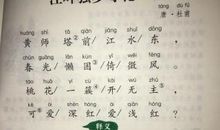 táng dù fǔ
唐·杜甫
huáng shī tǎ qián jiāng shuǐ dōng
黄/师/塔②前/江/水/东/，
chūn guāng lǎn kùn yǐ wēi fēng
春/光/懒/困/倚/微/风/。
táo huā yí cù kāi wú zhǔ
桃/花/一/簇/开/无/主/，
kě ài shēn hóng ài qiǎn hóng
可/爱/深/红/爱/浅/红/？
释义